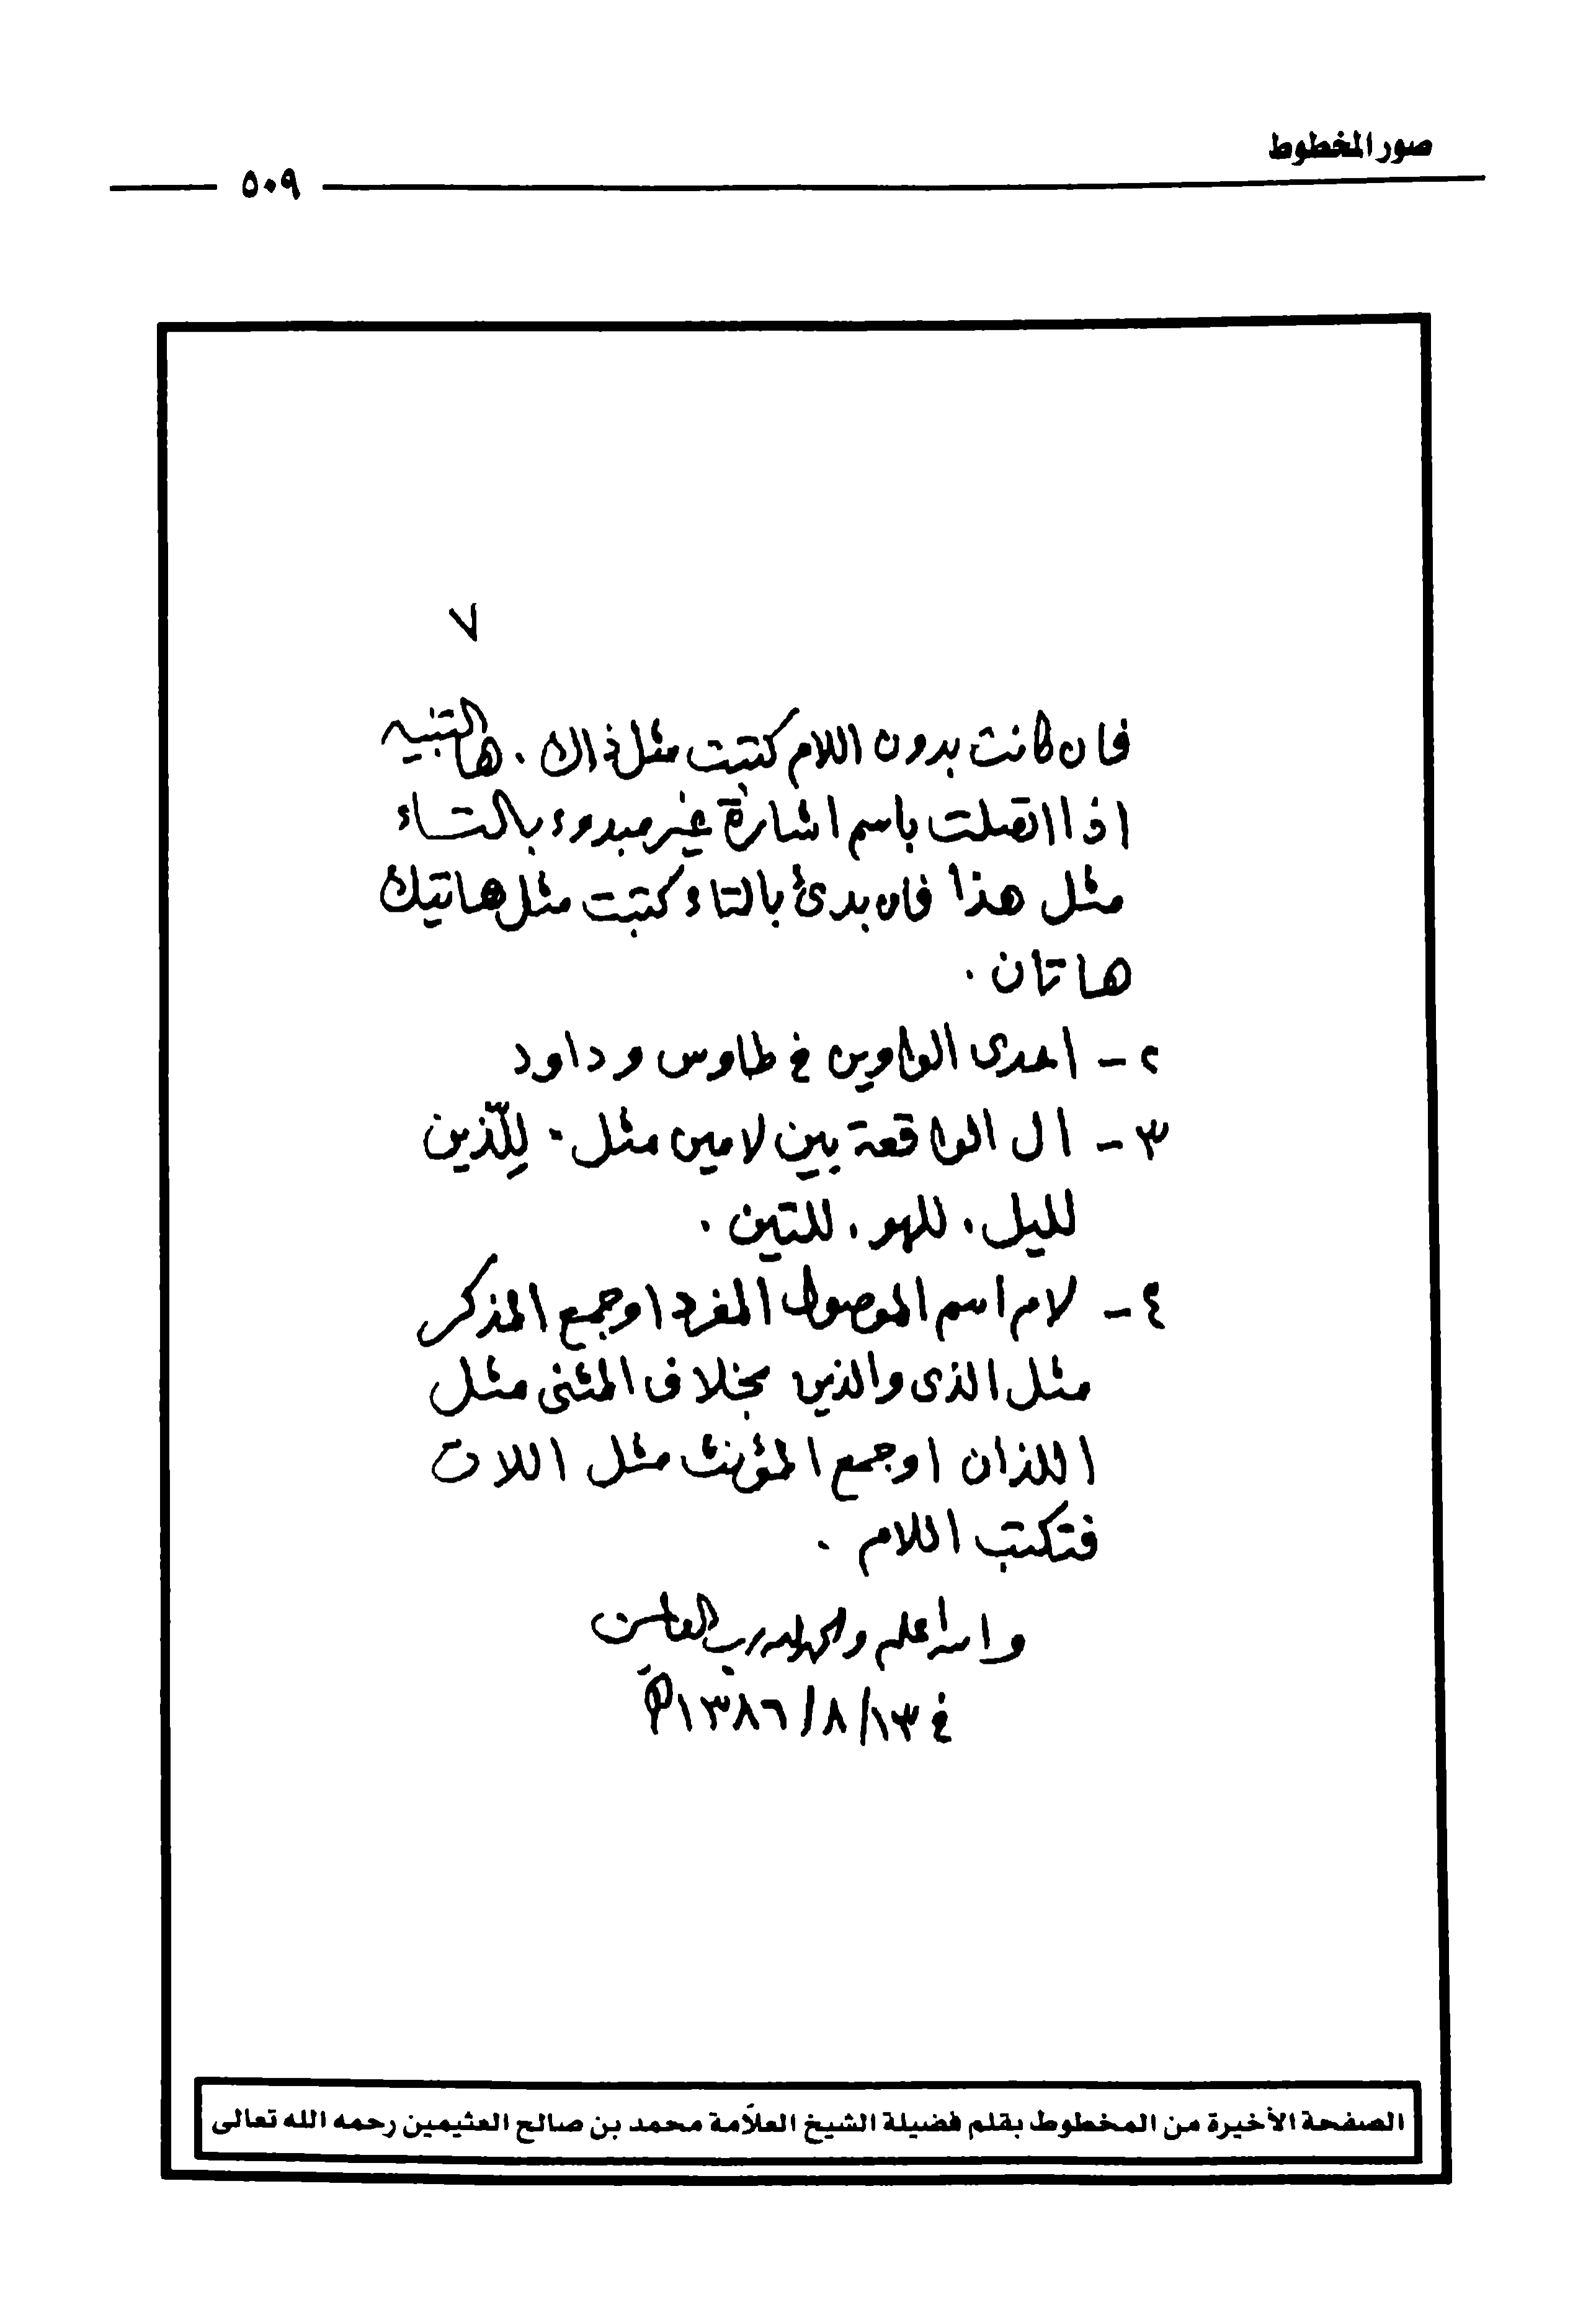 صور المخطوط
٥٠٩
٧
فان كانت بدون اللام كتبت مثل ذاك . ها التنبيه
اذا اتصلت باسم اشارة غير مبدوء بالتاء
مثل هذا فان بدئ بالتاء كتبت مثل هاتيك
هاتان .
٢ - احدى الواوين في طاوس و داود
٣ - ال الواقعة بين لامين مثل : لِلَّذين
لليل ، للهو ، للتين .
٤ - لام اسم الموصول المفرد او جمع المذكر
مثل الذى والذين بخلاف المثنى مثل
اللذان او جمع المؤنث مثل اللات
فتكتب اللام .
والله اعلم والحمد لله رب العالمين
في ١٣٨٦/٨/١٣ هـ
الصفحة الأخيرة من المخطوط بقلم فضيلة الشيخ العلاّمة محمد بن صالح العثيمين رحمه الله تعالى